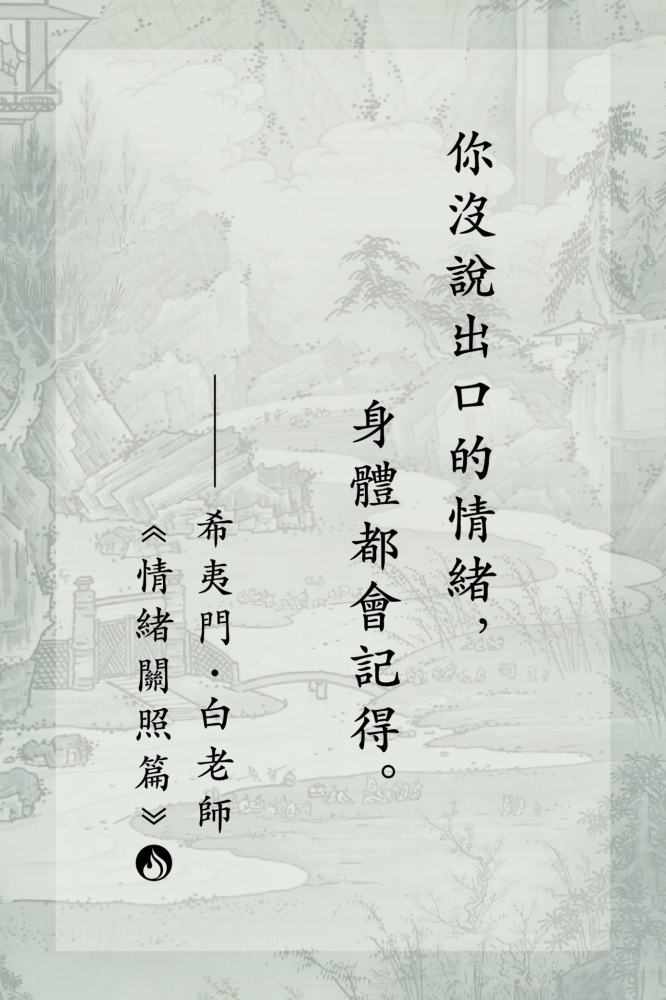 你沒說出口的情緒，
身體都會記得。
——希夷門·白老師
《情緒關照篇》